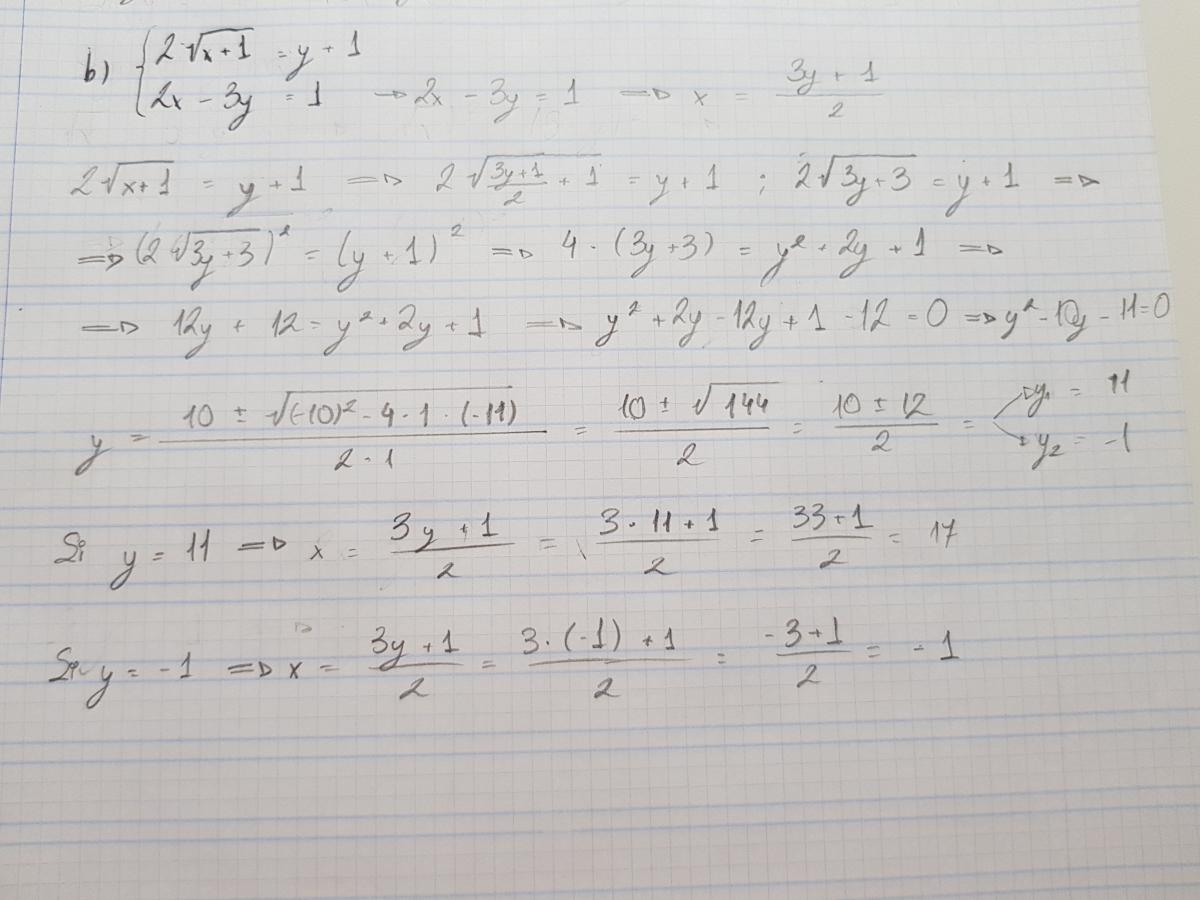 b) { 2√(x+1) = y + 1
2x - 3y = 1 → 2x - 3y = 1 ⇒ x = (3y + 1)/2
2√(x+1) = y + 1 ⇒ 2√((3y+1)/2 + 1) = y + 1 ; 2√(3y+3) = y + 1 ⇒
⇒ (2·√(3y+3))² = (y + 1)² ⇒ 4 · (3y+3) = y² + 2y + 1 ⇒
⇒ 12y + 12 = y² + 2y + 1 ⇒ y² + 2y - 12y + 1 - 12 = 0 ⇒ y² - 10y - 11 = 0
y = (10 ± √((-10)² - 4 · 1 · (-11)))/(2 · 1) = (10 ± √144)/2 = (10 ± 12)/2 = → y₁ = 11 → y₂ = -1
Si y = 11 ⇒ x = (3y + 1)/2 = (3 · 11 + 1)/2 = (33 + 1)/2 = 17
Si y = -1 ⇒ x = (3y + 1)/2 = (3 · (-1) + 1)/2 = (-3 + 1)/2 = -1